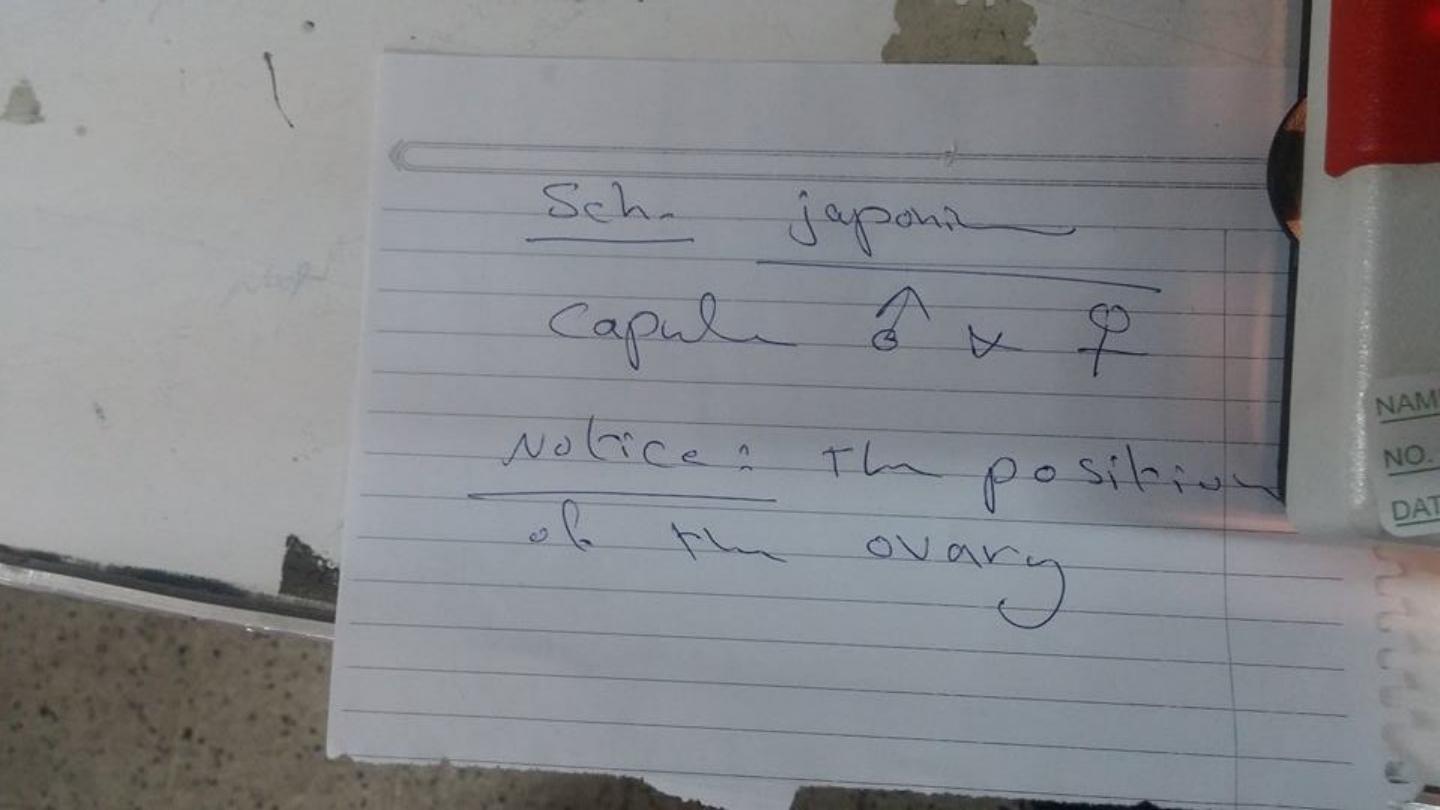 Sch. japoni
Capul ♂ & ♀
Notice: The position
of the ovary
NAM
NO.
DAT